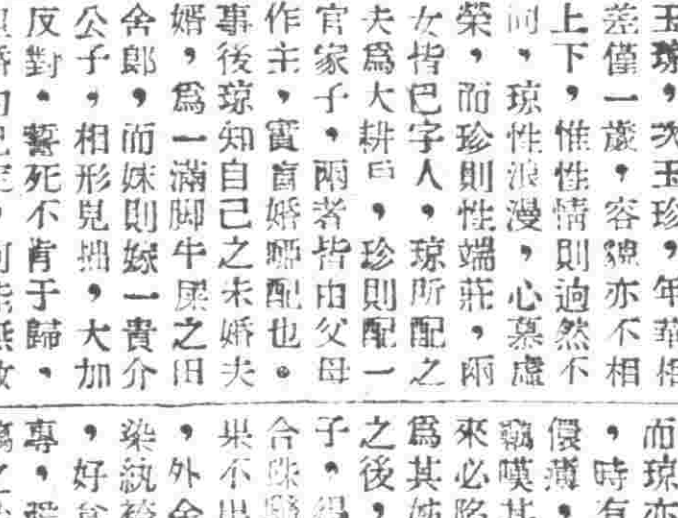 玉琼，次玉珍，年華相
差僅一歲，容貌亦不相
上下，惟性情則逈然不
同，琼性浪漫，心慕虛
榮，而珍則性端莊，兩
女皆巳字人，琼所配之
夫爲大耕戶，珍則配一
官家子，兩者皆由父母
作主，實盲婚啞配也。
事後琼知自己之未婚夫
婿，爲一滿脚牛屎之田
舍郎，而妹則嫁一貴介
公子，相形見拙，大加
反對。誓死不肯于歸，
而琼亦
，時有
儇薄，
嘆其
來必陷
爲其姊
之後，
子，得
合
果不出
，外舍
染紈袴
，好
專，